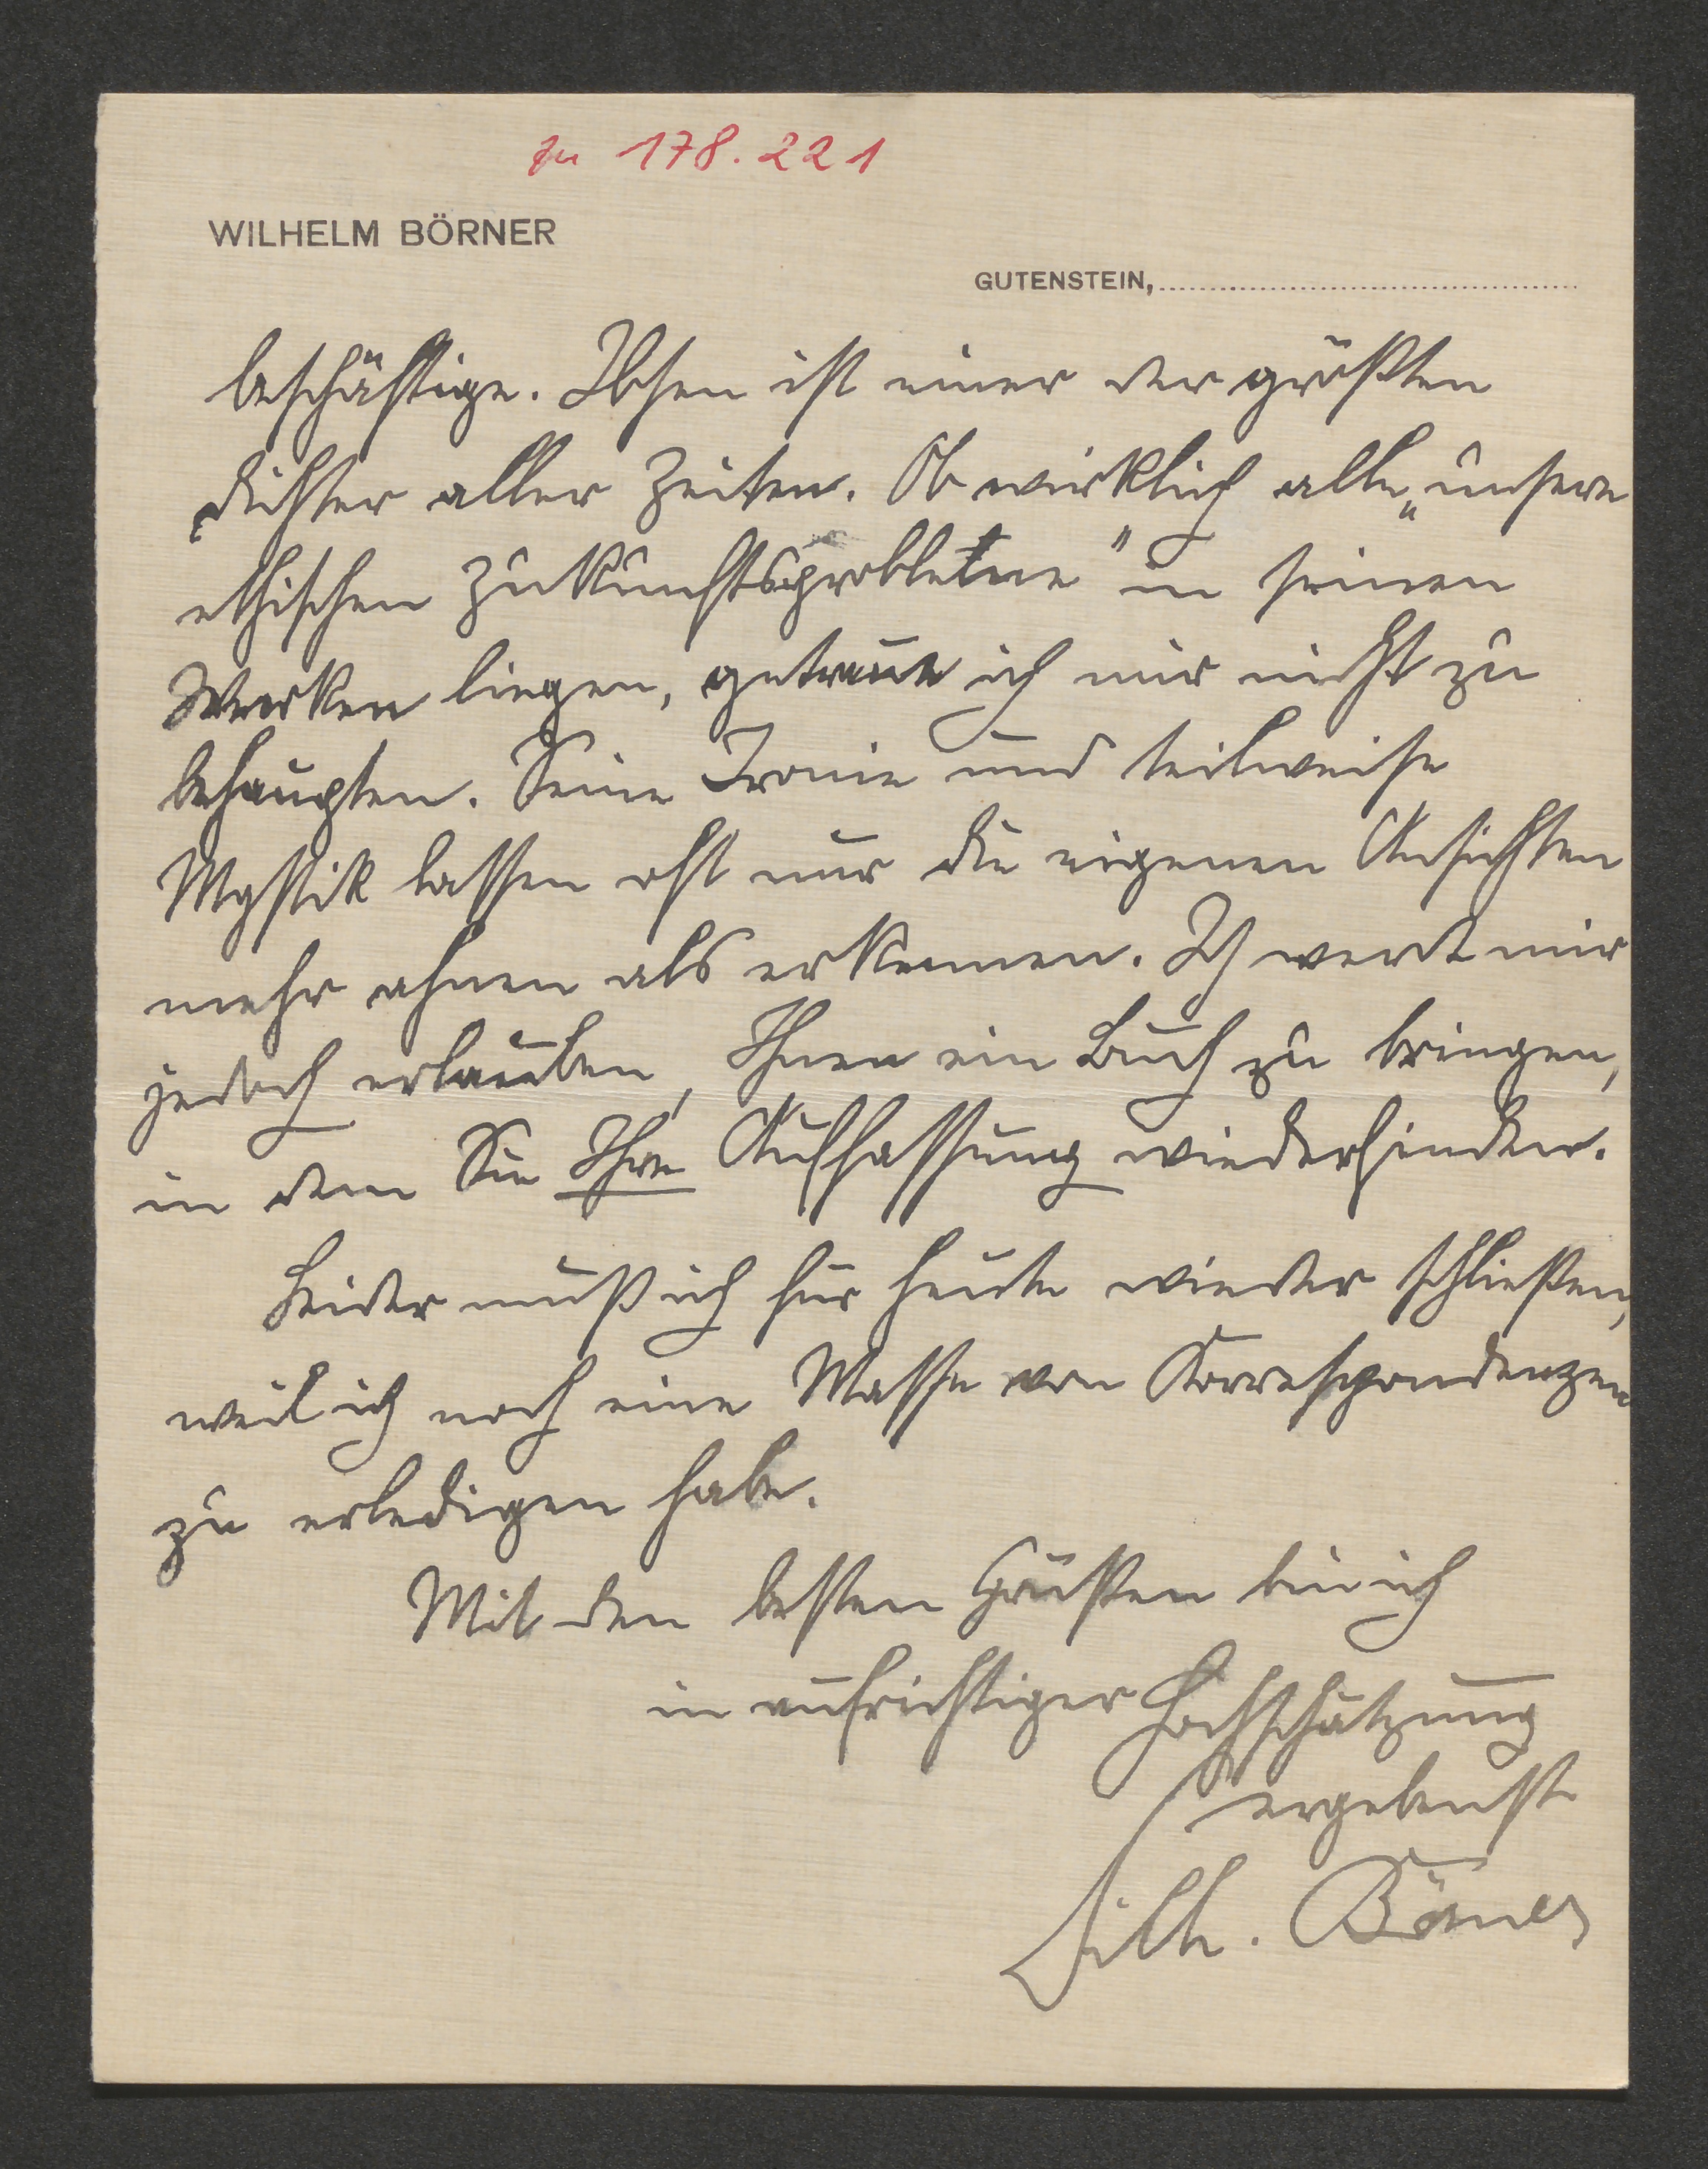 zu 178.221
WILHELM BÖRNER
GUTENSTEIN,
beschäftige. Ibsen ist einer der größten
Dichter aller Zeiten. Ob wirklich alle „unsere
ethischen Zukunftsprobleme" in seinen
Werken liegen, getraue ich mir nicht zu
behaupten. Seine Ironie und teilweise
Mystik lassen oft nur die eigenen Ansichten
mehr ahnen als erkennen. Ich werde mir
jedoch erlauben, Ihnen ein Buch zu bringen,
in dem Sie Ihre Auffassung wiederfinden.
Leider muß ich für heute wieder schließen,
weil ich noch eine Masse von Korrespondenzen
zu erledigen habe.
Mit den besten Grüßen bin ich
in aufrichtiger Hochschätzung
ergebenst
Wilh. Börner